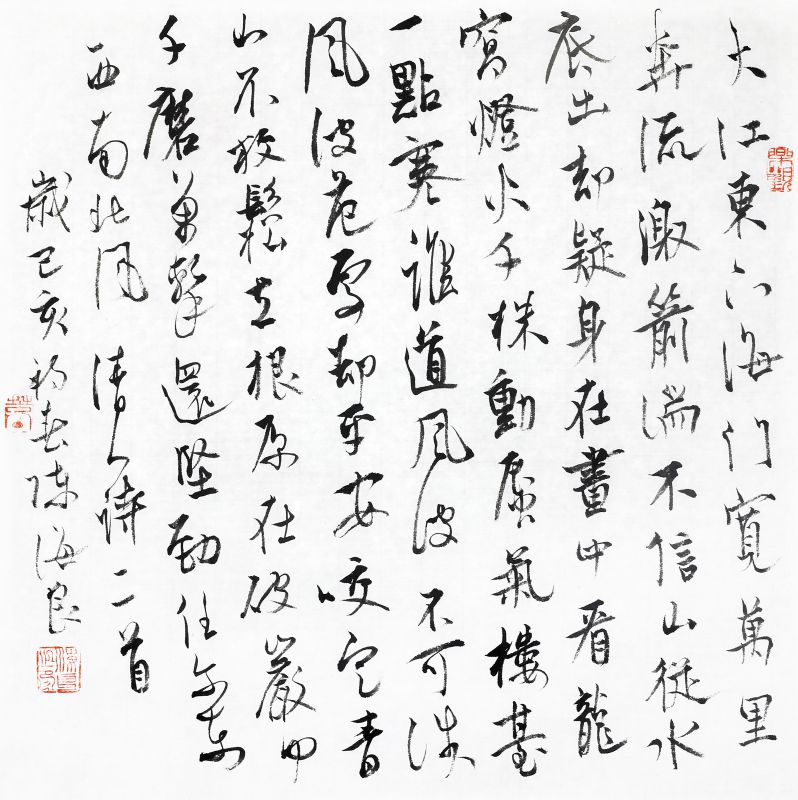 大江東下海门寬萬里
奔流激箭湍不信山從水
底出却疑身在畫中看龍
窩燈火千株動蜃氣樓臺
一點寒誰道风波不可涉
风波危處却平安咬定青
山不放鬆立根原在破巖中
千磨萬擊還堅勁任尔东
西南北风 清人詩二首
歲己亥初春陈海良